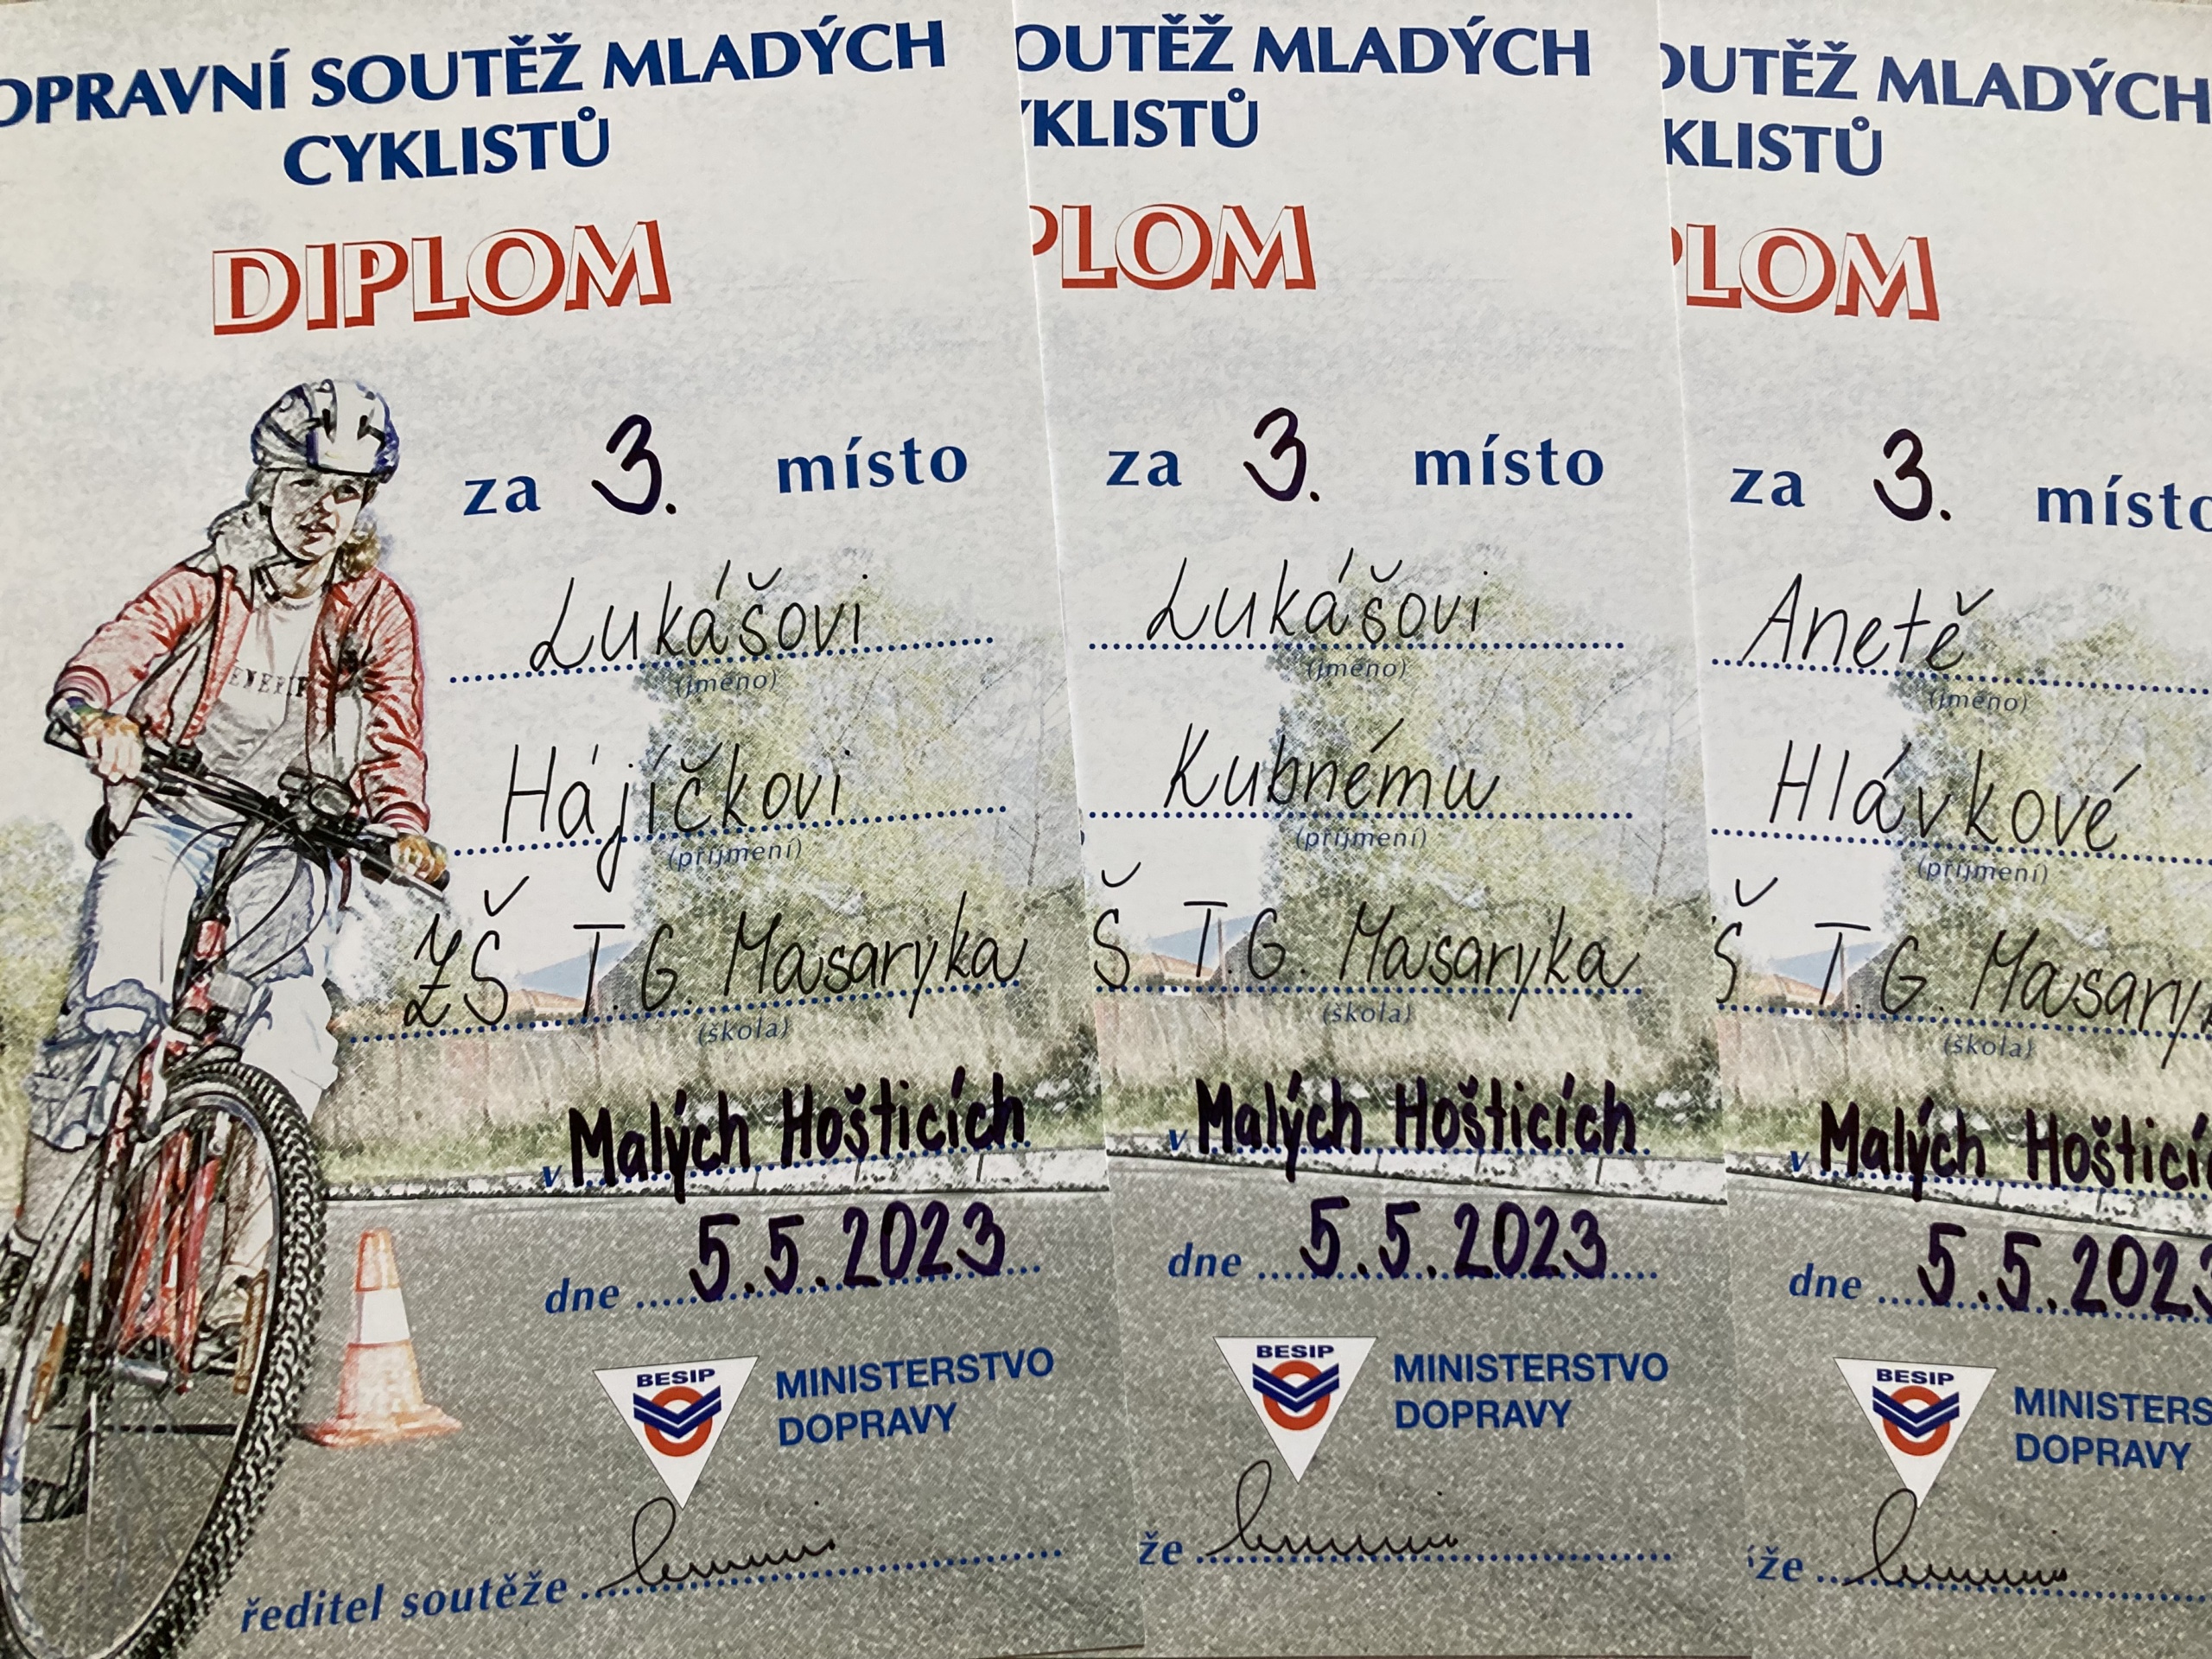 OPRAVNÍ SOUTĚŽ MLADÝCH
CYKLISTŮ
DIPLOM
za 3. místo
Lukášovi
(jméno)
Hájíčkovi
(příjmení)
ZŠ T. G. Masaryka
(škola)
v Malých Hošticích
dne 5.5.2023
BESIP
MINISTERSTVO
DOPRAVY
ředitel soutěže
OUTĚŽ MLADÝCH
YKLISTŮ
PLOM
za 3. místo
Lukášovi
(jméno)
Kubnému
(příjmení)
Š T. G. Masaryka
(škola)
v Malých Hošticích
dne 5.5.2023
BESIP
MINISTERSTVO
DOPRAVY
že
OUTĚŽ MLADÝCH
KLISTŮ
PLOM
za 3. místo
Anetě
(jméno)
Hlávkové
(příjmení)
Š T. G. Masaryk
(škola)
v Malých Hošticí
dne 5.5.2023
BESIP
MINISTERS
DOPRAVY
že